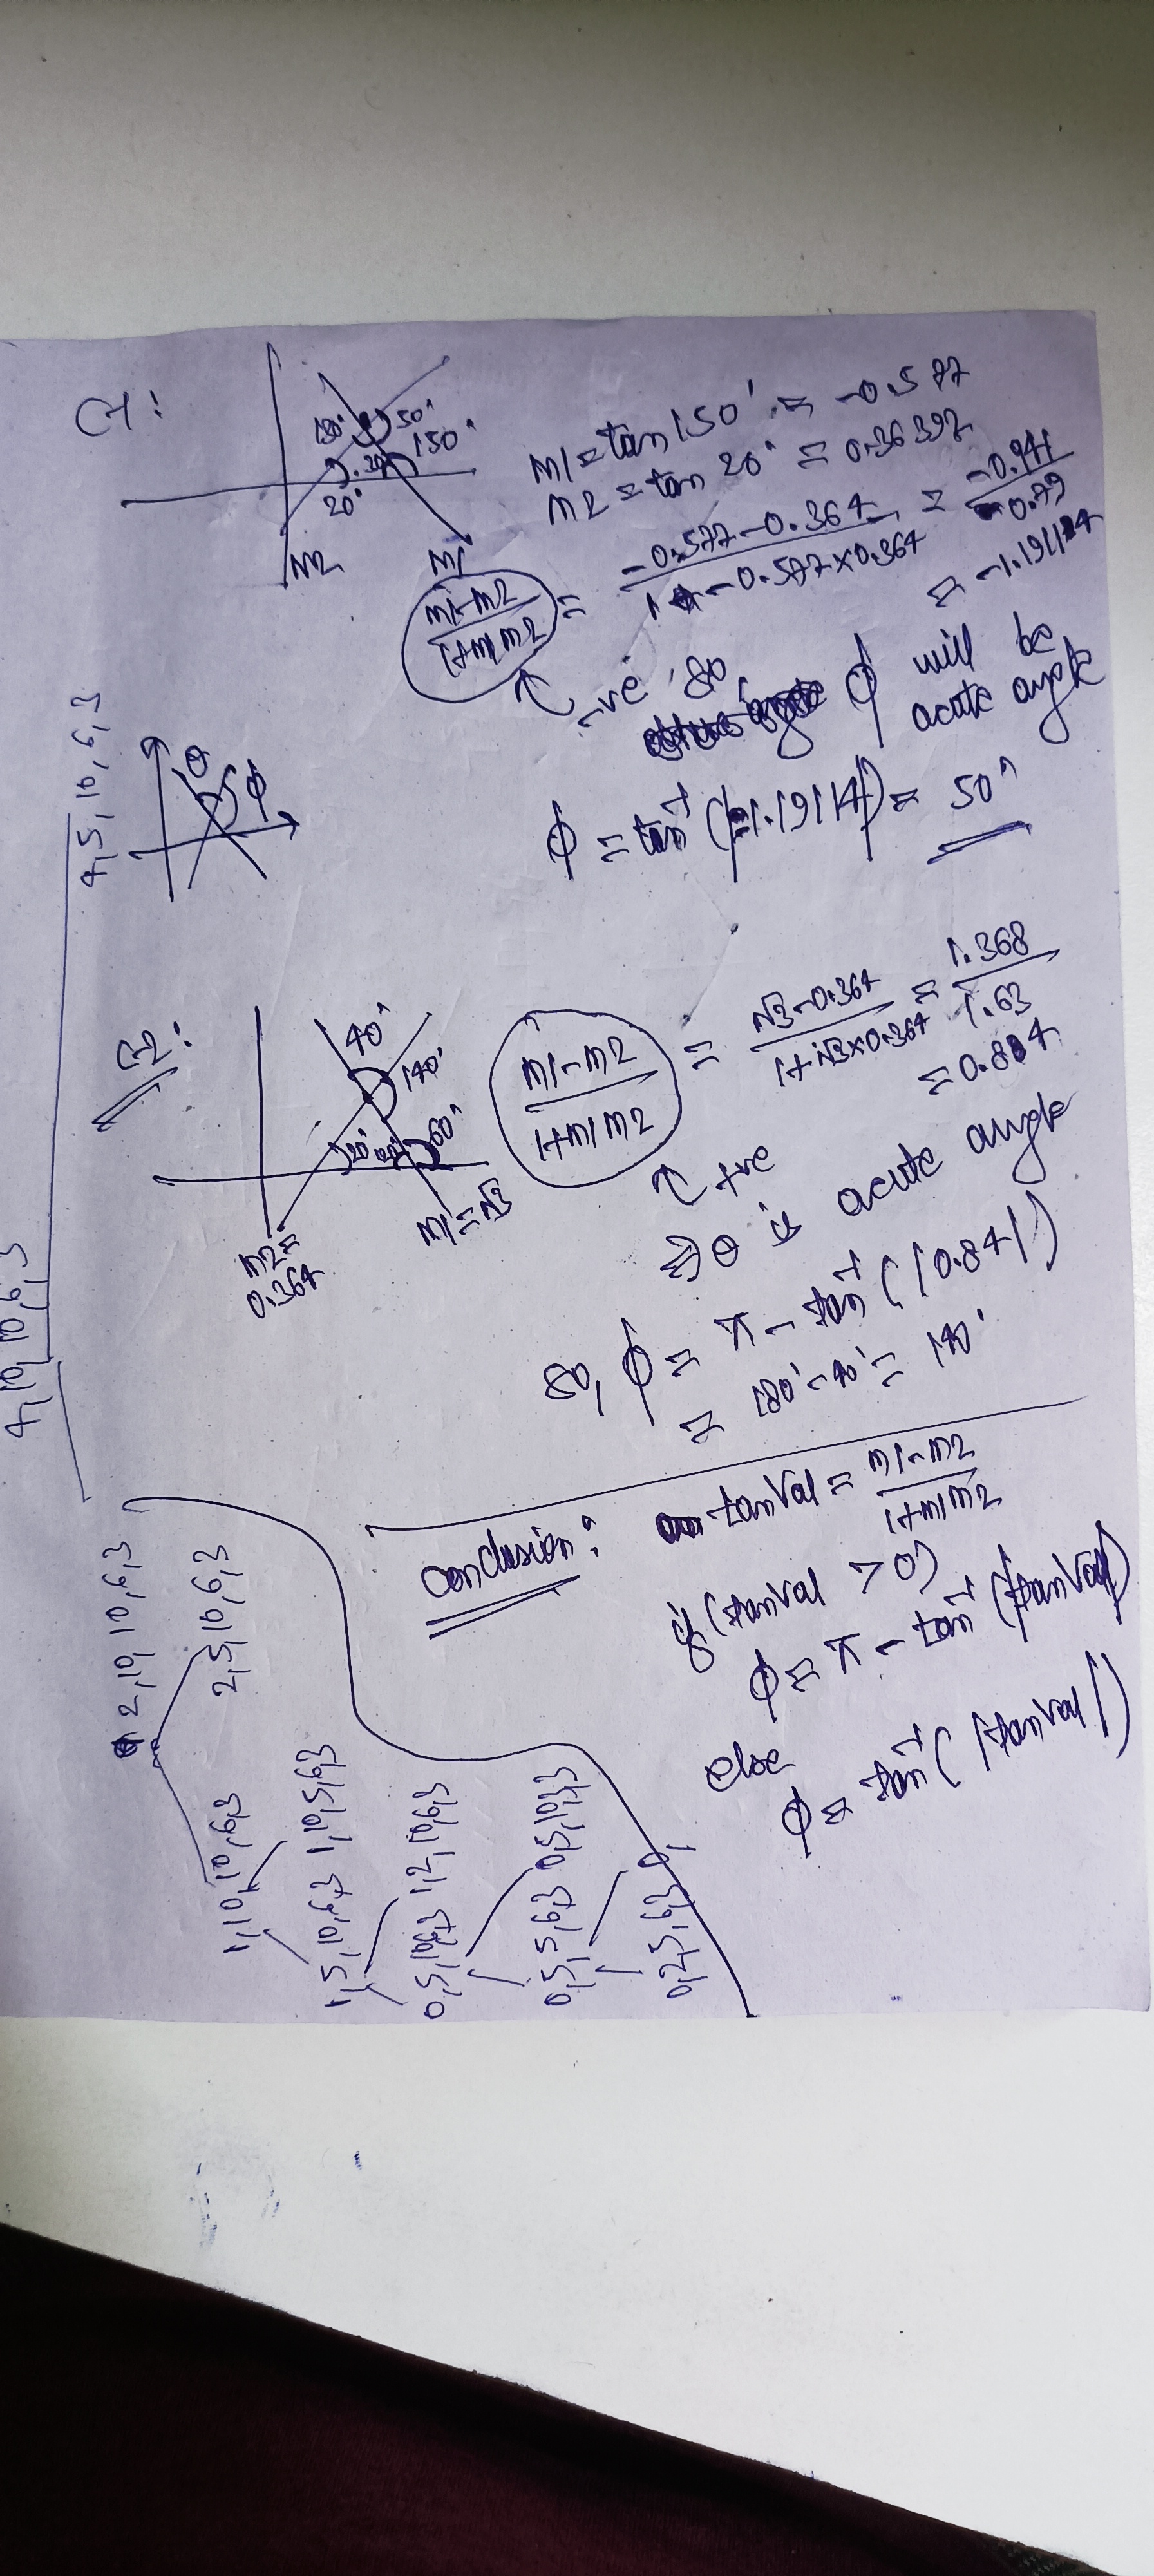 C1:
130° 50°
20° 30° 150°
m2 m1
m1 = tan 150° = -0.577
m2 = tan 20° = 0.36397
m1-m2 / 1+m1m2 = -0.577-0.364 / 1-0.577×0.364 = -0.941 / 0.79
= -1.19114
-ve so ϕ will be
acute angle
θ ϕ
ϕ = tan⁻¹(|-1.19114|) = 50°
4,5,10,6,3
C2:
40°
140°
20° 60°
m2=
0.364
m1=√3
m1-m2 / 1+m1m2 = √3-0.364 / 1+√3×0.364 = 1.368 / 1.63
= 0.84
+ve
⇒ θ is acute angle
so, ϕ = π - tan⁻¹(|0.84|)
= 180°-40° = 140°
4,10,10,6,3
conclusion: tanVal = m1-m2 / 1+m1m2
if(tanVal > 0)
ϕ = π - tan⁻¹(|tanVal|)
else
ϕ = tan⁻¹(|tanVal|)
2,10,10,6,3
2,5,10,6,3
1,10,10,6,3
1,10,5,6,3
1,5,10,6,3
1,2,10,6,3
0,5,10,6,3
0,5,5,6,3
0,2,5,6,3